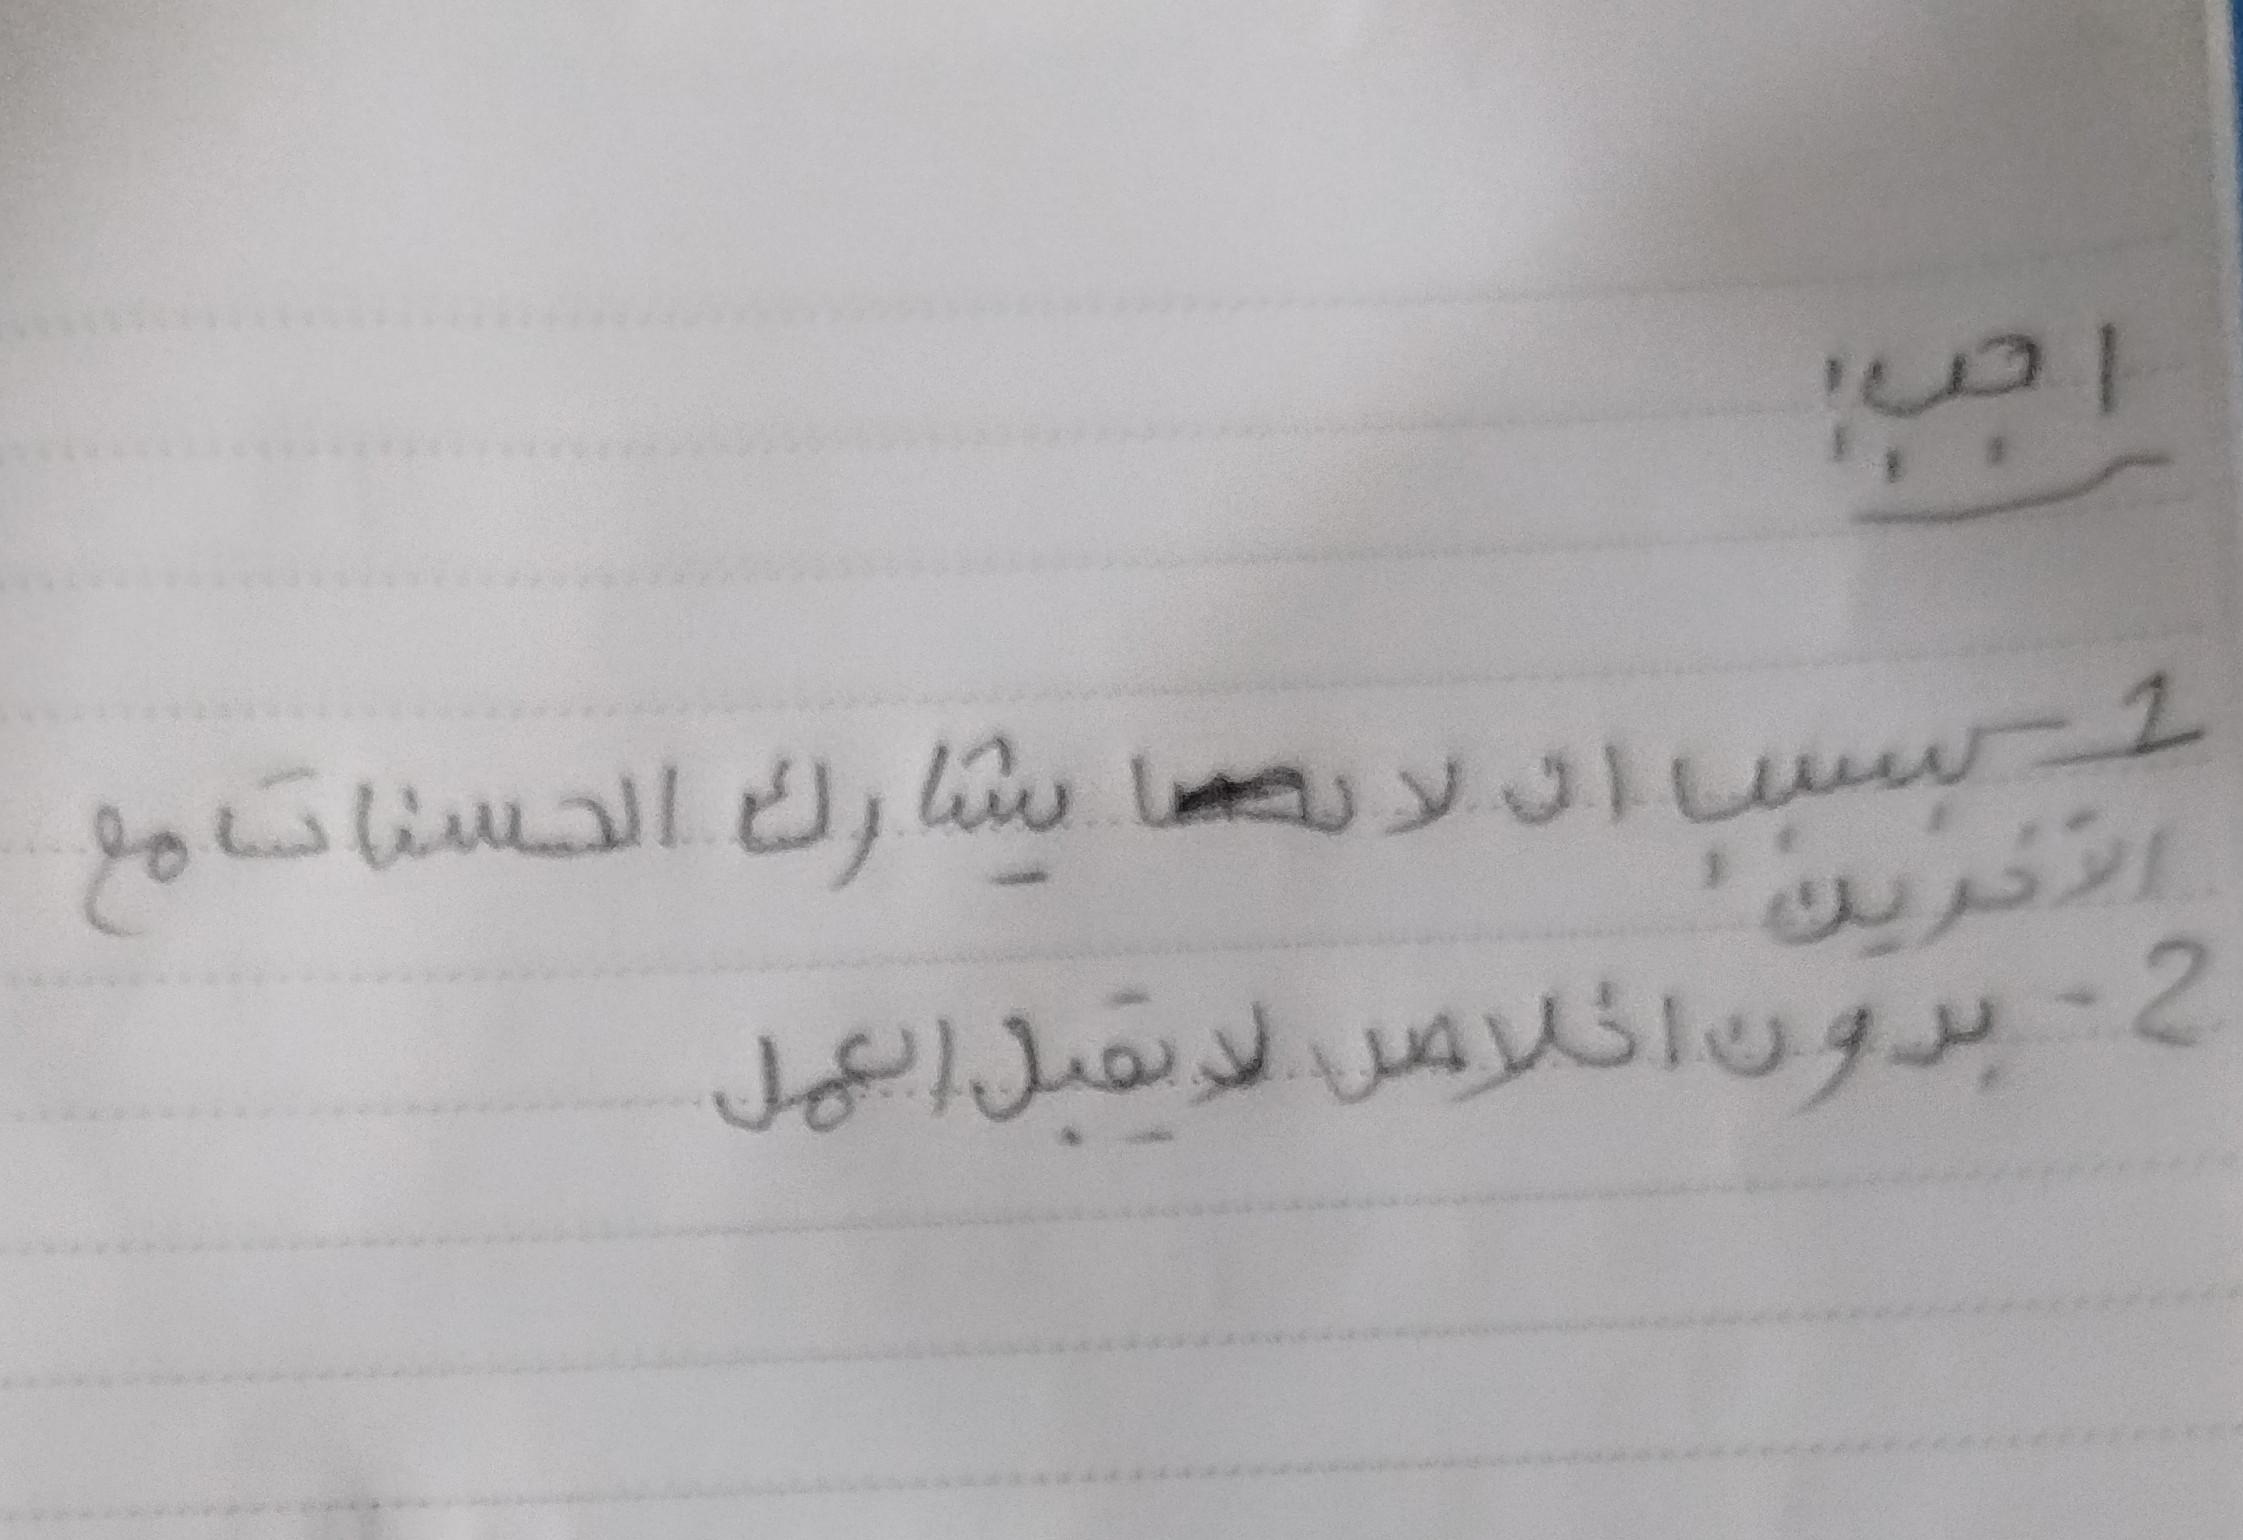 اجب:
1- بسبب ان لا يشارك الحسنات مع
الآخرين
2- بدون اخلاص لا يقبل العمل